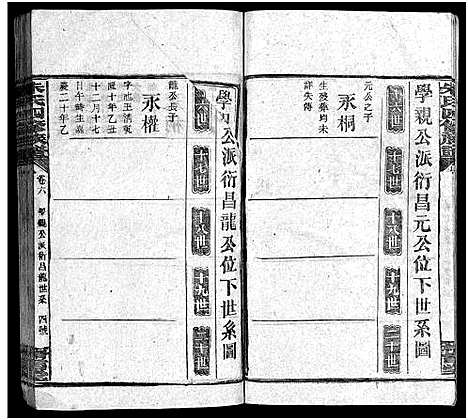 學親公派衍昌元公位下世系圖
十六世
十七世
十八世
十九世
二十世
元公之子
永桐
生歿葬均未
詳失傳
學親公派衍昌龍公位下世系圖
十六世
十七世
十八世
十九世
二十世
龍公長子
永權
十二月十七
日午時生嘉
慶二十年乙
朱氏四修族譜
卷六
學親公派衍昌龍世系
四號